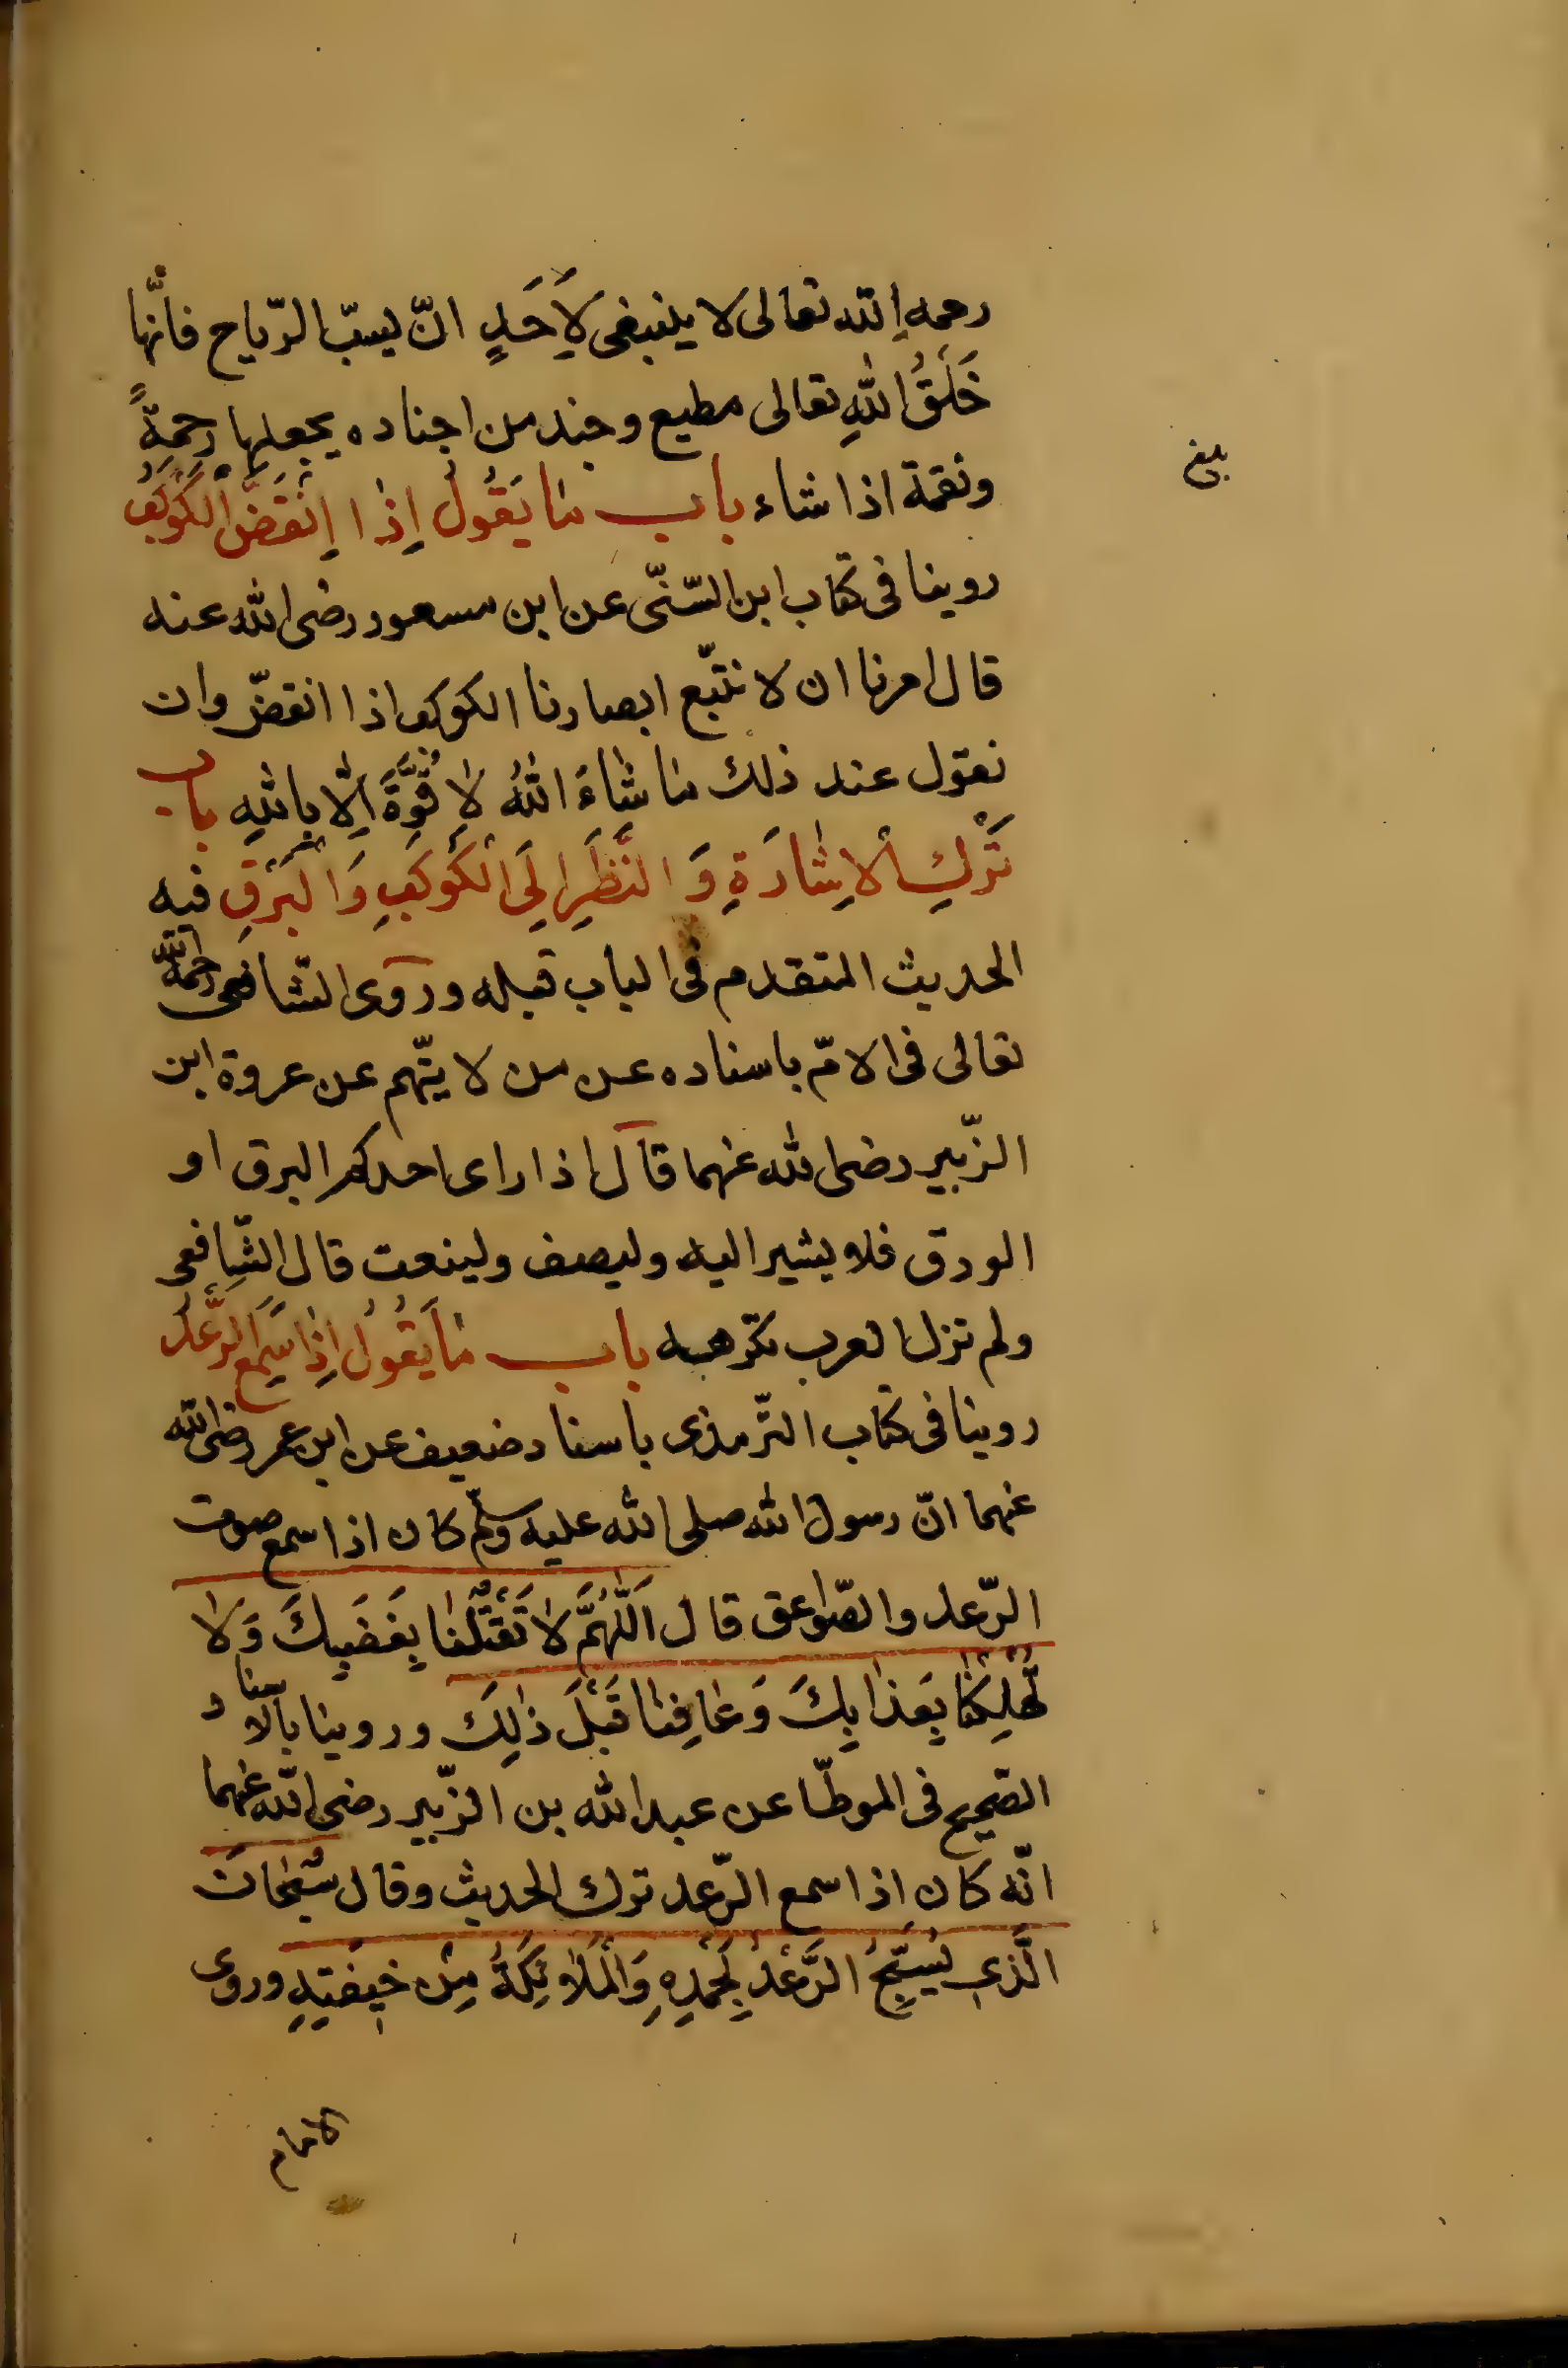 رحمه الله تعالى لا ينبغى لِاَحَدٍ انّ يسبّ الرّياح فانّها
خَلْقُ اللهِ تعالى مطيع وجند من اجناده يجعلها رحمةً
ونقمة اذا شاء باب مَا يَقُولُ إِذَا إِنْقَضَّ الْكَوْكَبُ
روينا فى كتاب ابن السّنّى عن ابن مسعود رضى الله عنه
قال امرنا ان لا نتّبع ابصارنا الكوكب اذا انقضّ وان
نقول عند ذلك مَا شَاءَ اللهُ لَا قُوَّةَ اِلَّا بِاللهِ باب
تَرْكِ الْاِشَارَةِ وَالنَّظَرِ اِلَى الْكَوْكَبِ وَالْبَرْقِ فيه
الحديث المتقدم فى الباب قبله وروى الشّافعى رحمه الله
تعالى فى الامّ باسناده عن من لا يتّهم عن عروة ابن
الزّبير رضى الله عنهما قال اذا راى احدكم البرق او
الودق فلا يشير اليه وليصف ولينعت قال الشّافعى
ولم تزل العرب تكرهه باب مَا يَقُولُ اِذَا سَمِعَ الرَّعْدَ
روينا فى كتاب التّرمذى باسناد ضعيف عن ابن عمر رضى الله
عنهما انّ رسول الله صلى الله عليه وسلّم كان اذا سمع صوت
الرّعد والصّواعق قال اَللّٰهُمَّ لَا تَقْتُلْنَا بِغَضَبِكَ وَلَا
تُهْلِكْنَا بِعَذَابِكَ وَعَافِنَا قَبْلَ ذٰلِكَ وروينا بالاسناد
الصّحيح فى الموطّا عن عبد الله بن الزّبير رضى الله عنهما
انّه كان اذا سمع الرّعد ترك الحديث وقال سُبْحَانَ
الَّذِى يُسَبِّحُ الرَّعْدُ بِحَمْدِهِ وَالْمَلَائِكَةُ مِنْ خِيفَتِهِ وروى
الامام